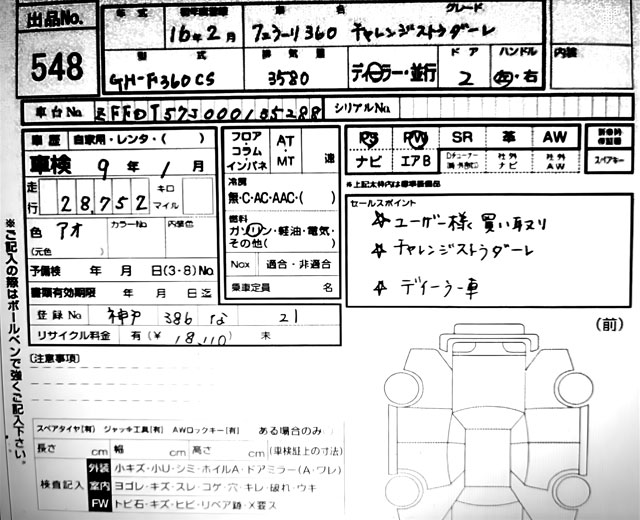 出品No.
548
年式 初年度登録 車名 グレード
16年2月 フェラーリ360 チャレンジストラダーレ
型式 排気量 ドア ハンドル 内装
GH-F360CS 3580 ディーラー・並行 2 左・右
車台No. ZFFDT57J000135288 シリアルNo.
車歴 自家用・レンタ・( )
車検 9年1月
走行 28,752 キロ マイル
色 アオ カラーNo. 内装色
(元色)
予備検 年 月 日(3・8)No
書類有効期限 年 月 日迄
登録No 神戸 386 な 21
リサイクル料金 有(¥ 18,110) 未
フロア・コラム・インパネ AT・MT 速
冷房
無・C・AC・AAC・( )
燃料
ガソリン・軽油・電気・その他( )
Nox 適合・非適合
乗車定員 名
PS PW SR 革 AW
ナビ エアB Dチューナー 社外ナビ 社外AW スペアキー
※上記太枠内は標準装備品
セールスポイント
☆ ユーザー様買い取り
☆ チャレンジストラダーレ
☆ ディーラー車
(前)
※ご記入の際はボールペンで強くご記入下さい。
〔注意事項〕
スペアタイヤ[有] ジャッキ工具[有] AWロックキー[有] ある場合のみ
長さ cm 幅 cm 高さ cm (車検証上の寸法)
検査記入 外装 小キズ・小U・シミ・ホイルA・ドアミラー(A・ワレ)
室内 ヨゴレ・キズ・スレ・コゲ・穴・キレ・破れ・ウキ
FW トビ石・キズ・ヒビ・リペア跡・X要ス